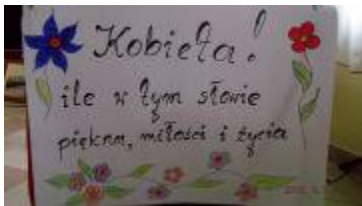 Kobieta!
ile w tym słowie
piękna, miłości i życia